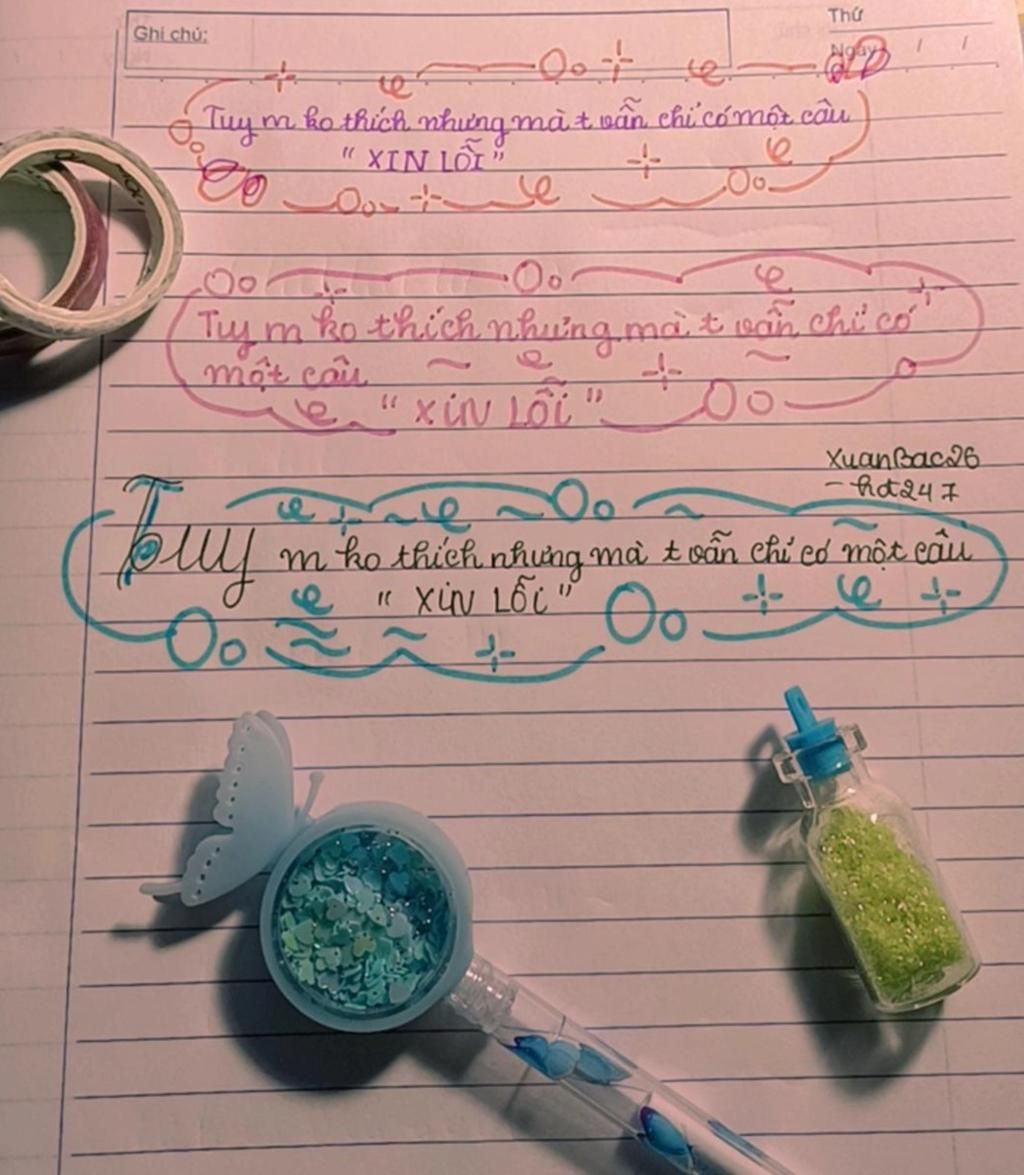 Ghi chú:
Thứ
Ngày / /
Tuy m ko thích nhưng mà t vẫn chỉ có một câu
“ XIN LỖI ”
Tuy m ko thích nhưng mà t vẫn chỉ có
một câu
“ XIN LỖI ”
XuanBac26
- hdt247
Tuy m ko thích nhưng mà t vẫn chỉ có một câu
“ XIN LỖI ”